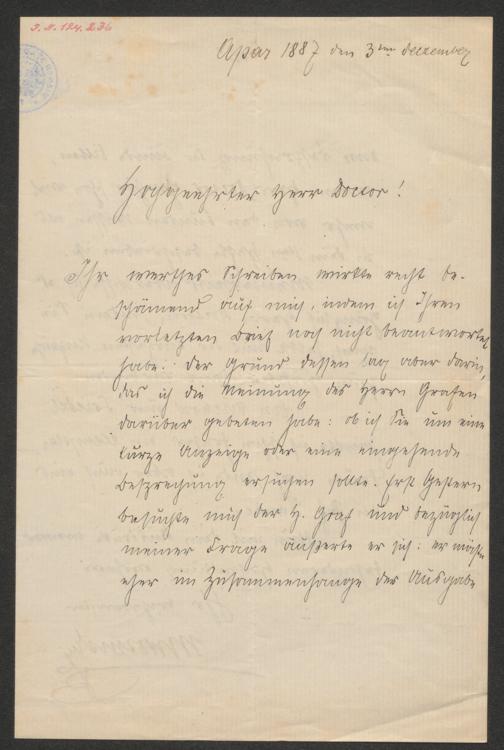 J. N. 124.236
Apar 1887 den 3ten Dezember
Hochgeehrter Herr Doctor!
Ihr werthes Schreiben wirkte recht be-
schämend auf mich, indem ich Ihren
vorletzten Brief noch nicht beantwortet
habe. Der Grund dessen lag aber darin,
das ich die Meinung des Herrn Grafen
darüber gebeten habe: ob ich Sie um eine
kurze Anzeige oder eine eingehende
Besprechung ersuchen sollte. Erst Gestern
besuchte mich der H. Graf und bezüglich
meiner Frage äußerte er sich: er möchte
eher im Zusammenhange der Ausgabe